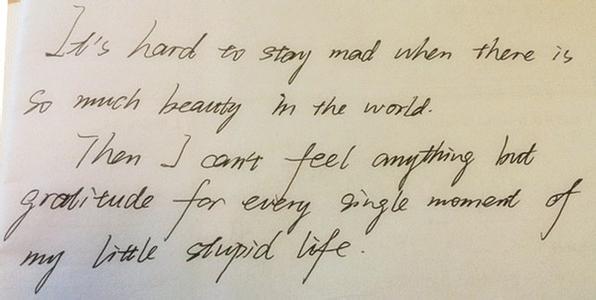 It's hard to stay mad when there is
so much beauty in the world.
Then I can't feel anything but
gratitude for every single moment of
my little stupid life.